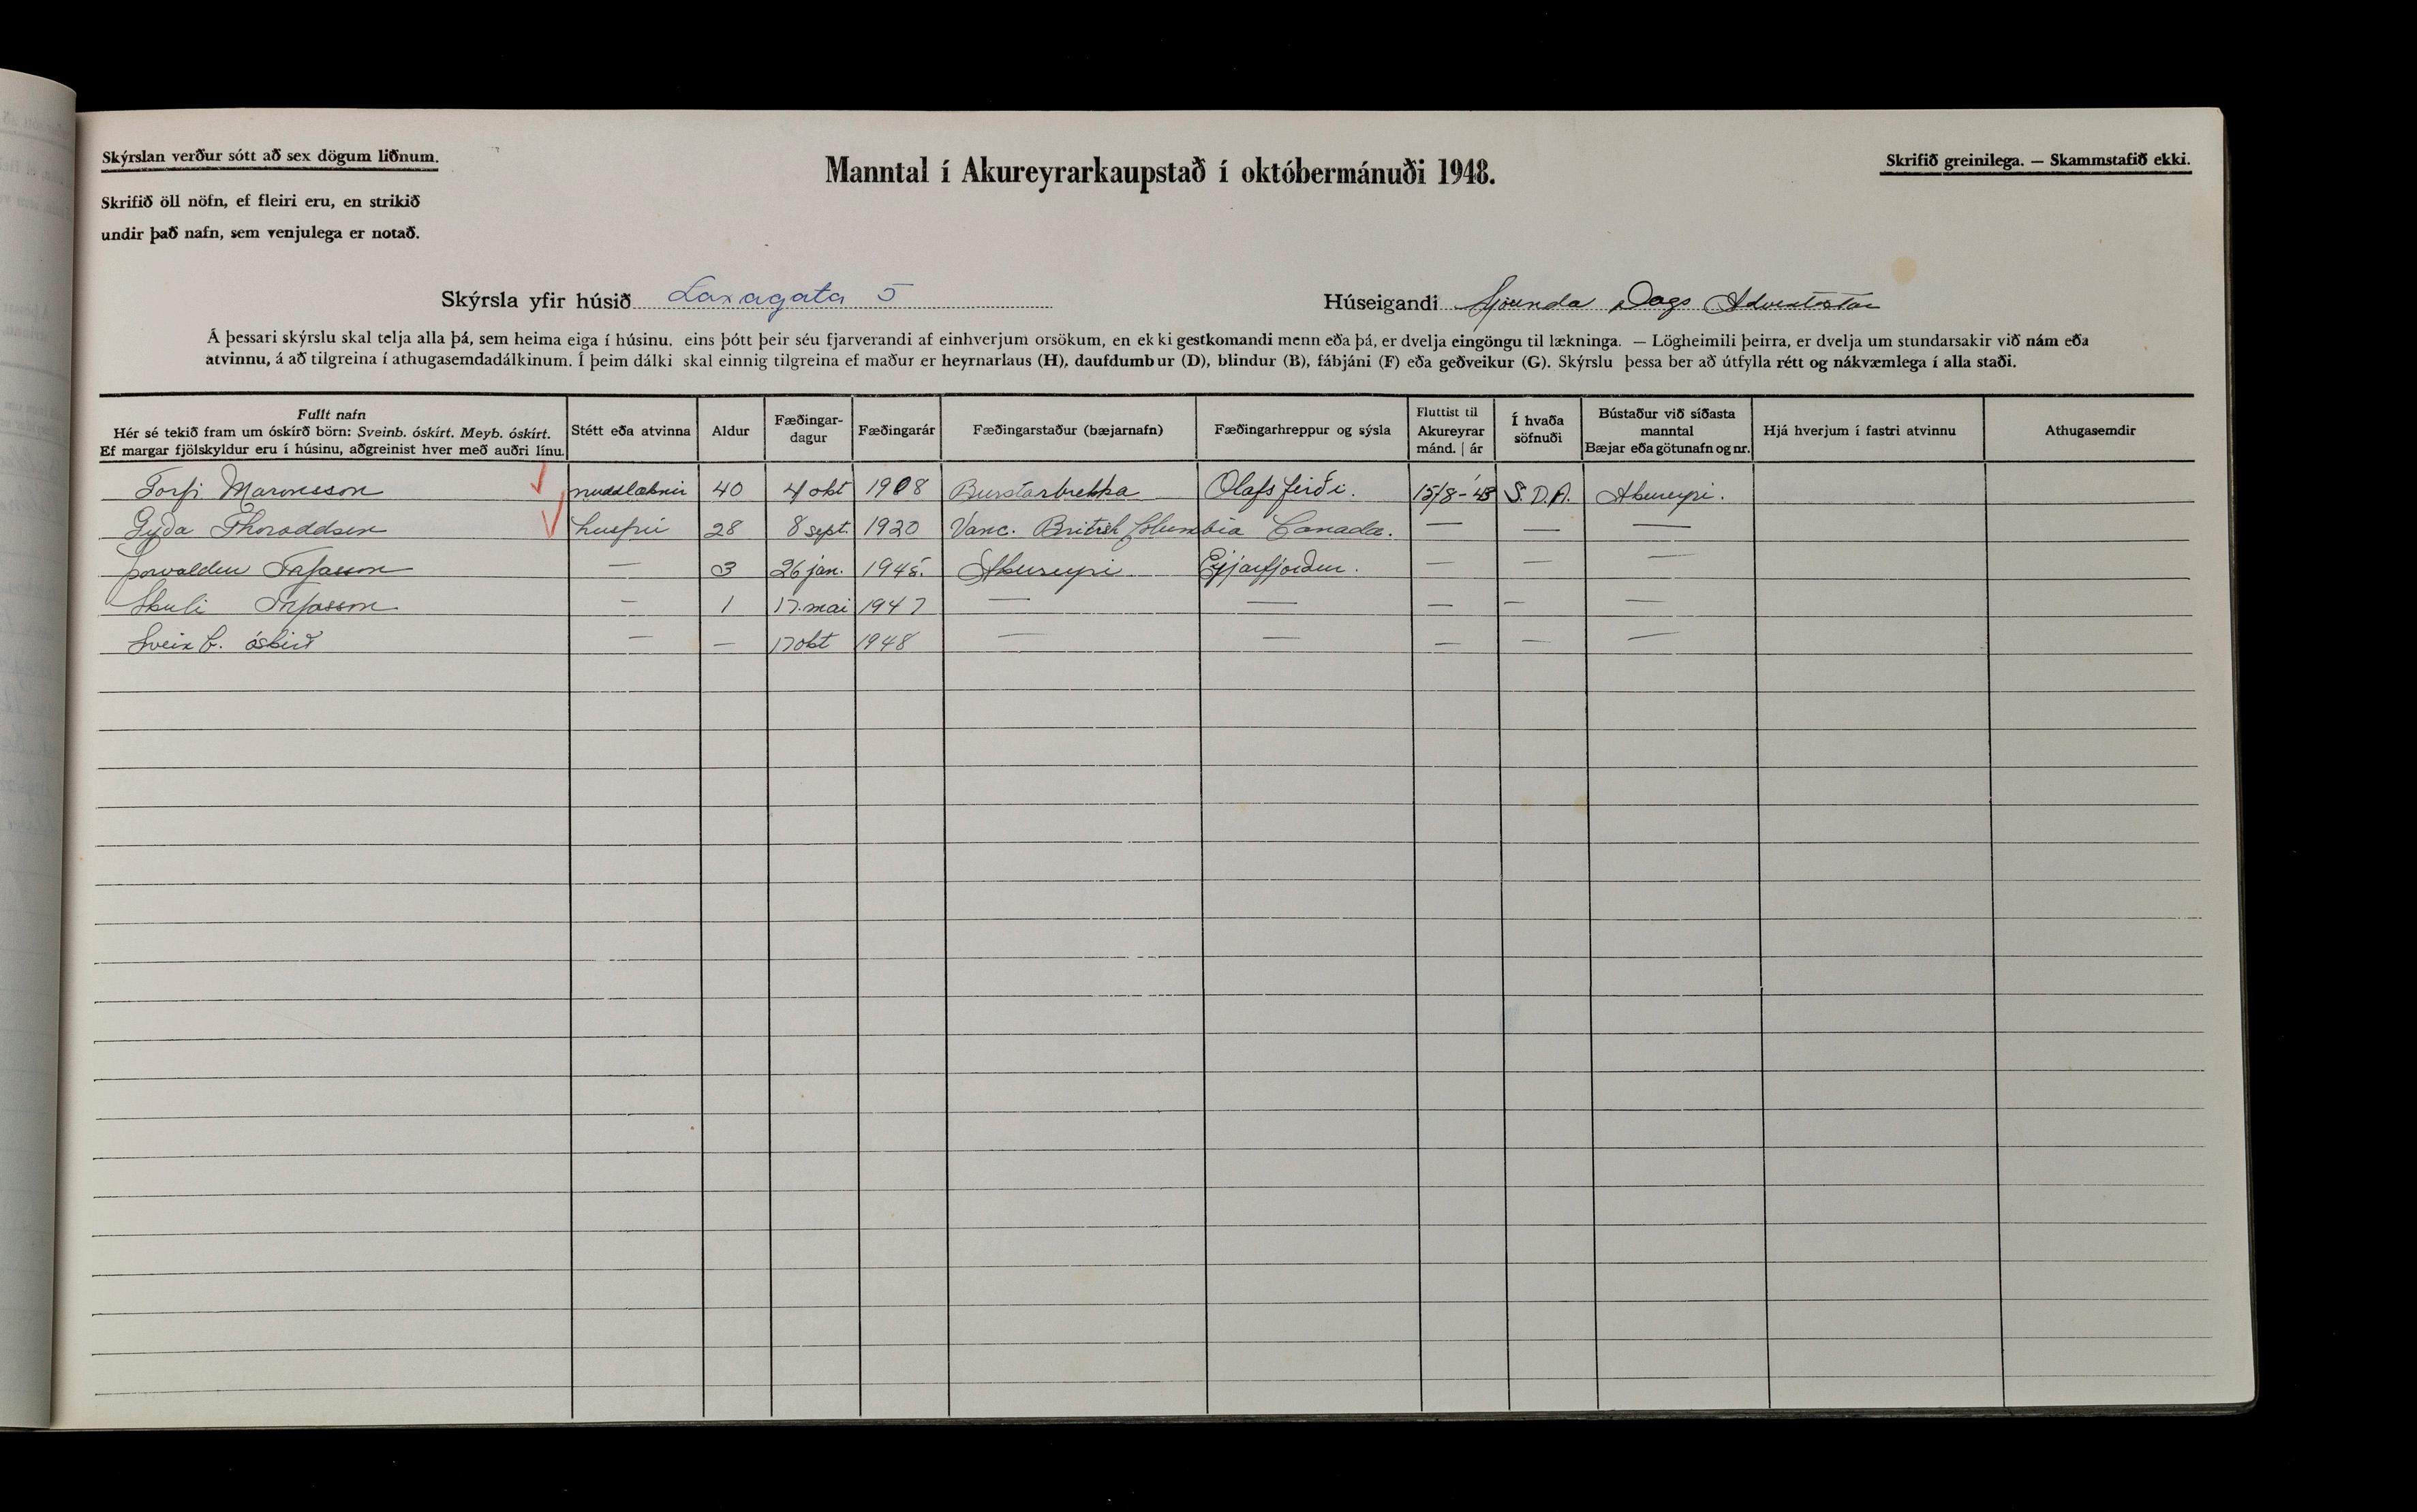 Skýrslan verður sótt að sex dögum liðnum.
Skrifið öll nöfn, ef fleiri eru, en strikið
undir það nafn, sem venjulega er notað.
Manntal í Akureyrarkaupstað í októbermánuði 1948.
Skrifið greinilega. — Skammstafið ekki.
Skýrsla yfir húsið Laxagata 5
Húseigandi Sjöunda Dags Adventistar
Á þessari skýrslu skal telja alla þá, sem heima eiga í húsinu, eins þótt þeir séu fjarverandi af einhverjum orsökum, en ekki gestkomandi menn eða þá, er dvelja eingöngu til lækninga. — Lögheimili þeirra, er dvelja um stundarsakir við nám eða
atvinnu, á að tilgreina í athugasemdadálkinum. Í þeim dálki skal einnig tilgreina ef maður er heyrnarlaus (H), daufdumbur (D), blindur (B), fábjáni (F) eða geðveikur (G). Skýrslu þessa ber að útfylla rétt og nákvæmlega í alla staði.
Fullt nafn
Hér sé tekið fram um óskírð börn: Sveinb. óskírt. Meyb. óskírt.
Ef margar fjölskyldur eru í húsinu, aðgreinist hver með auðri línu.
Stétt eða atvinna
Aldur
Fæðingar-
dagur
Fæðingarár
Fæðingarstaður (bæjarnafn)
Fæðingarhreppur og sýsla
Fluttist til
Akureyrar
mánd. | ár
Í hvaða
söfnuði
Bústaður við síðasta
manntal
Bæjar eða götunafn og nr.
Hjá hverjum í fastri atvinnu
Athugasemdir
Torfi Maronsson nuddlæknir 40 4 okt 1908 Burstarbrekka Olafsfirði. 15/8-'43 S.D.A. Akureyri.
Gyða Thoroddsen husfrú 28 8 sept. 1920 Vanc. British Columbia Canada. — — —
Þorvaldur Torfason — 3 26 jan. 1945. Akureyri Eyjafjörður. — — —
Skuli Torfason — 1 17. mai 1947 — — — — —
Svein b. óskirt — — 17 okt 1948 — — — — —